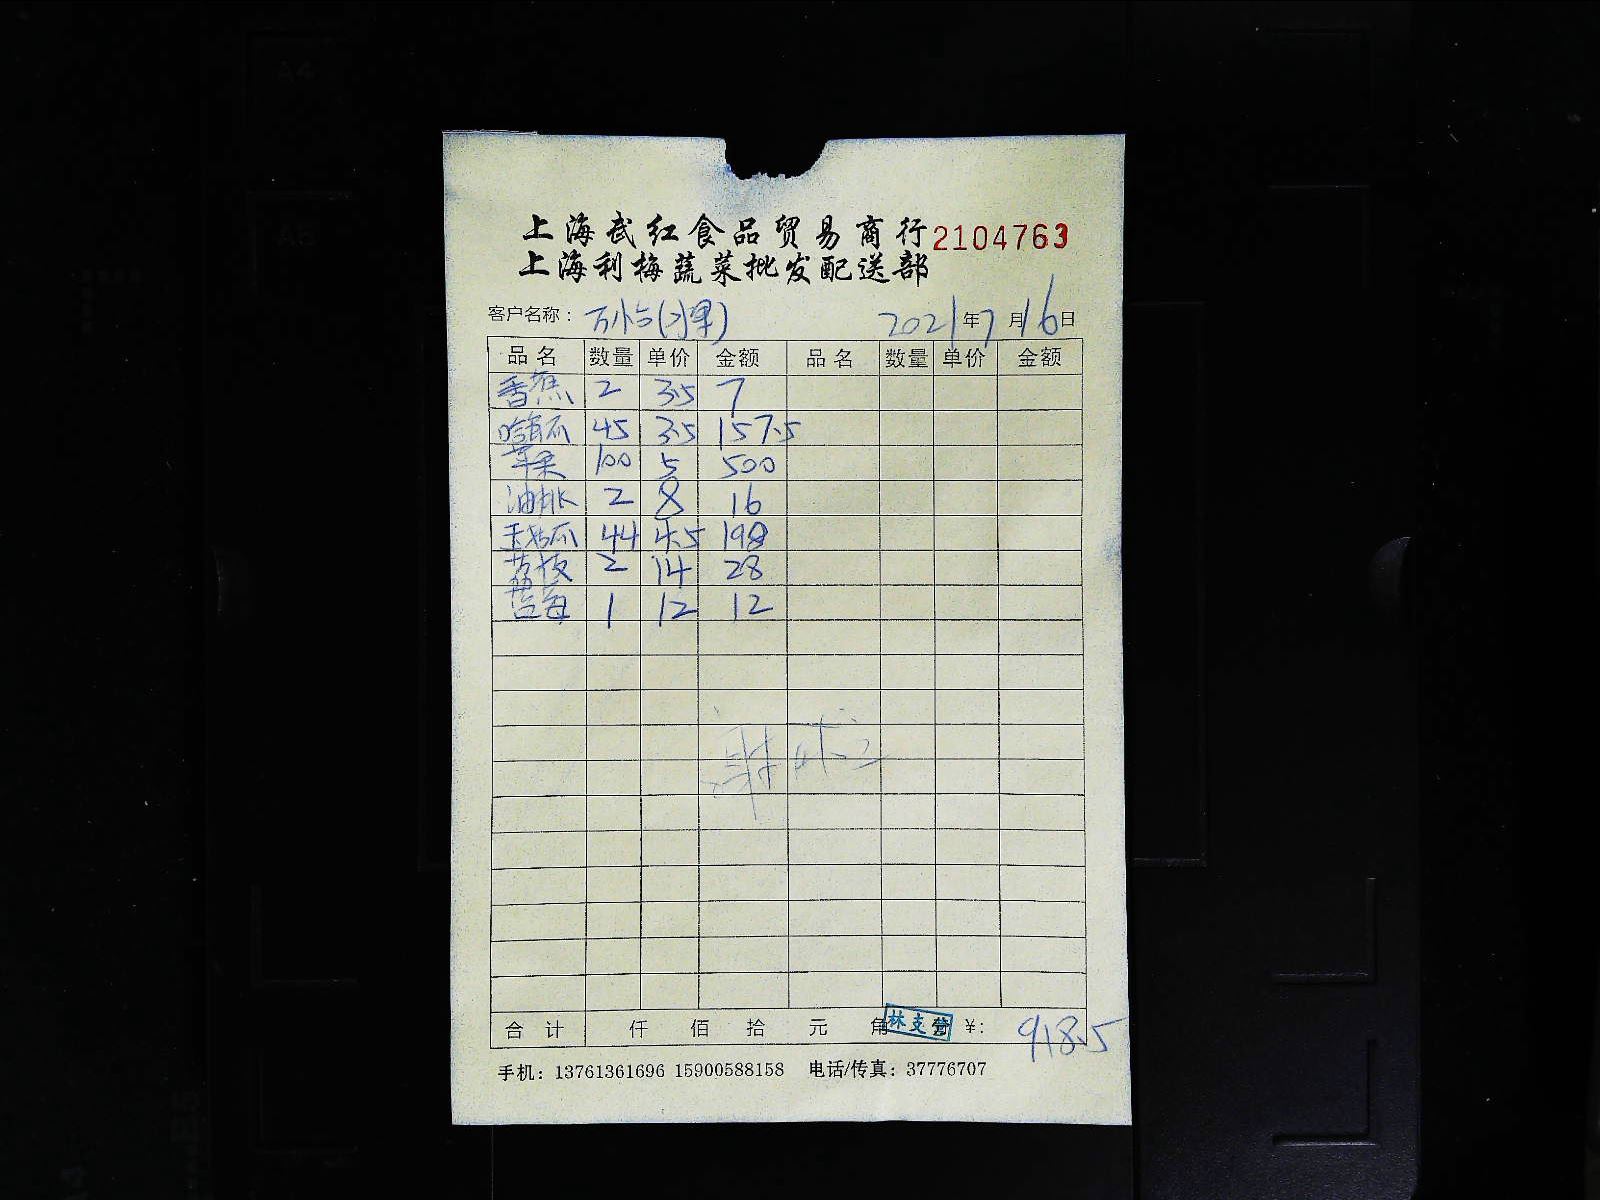 上海武红食品贸易商行 2104763
上海利梅蔬菜批发配送部
客户名称：万小台(水果) 2021年7月16日
品名 数量 单价 金额 品名 数量 单价 金额
香蕉 2 3.5 7
哈密瓜 45 3.5 157.5
苹果 100 5 500
油桃 2 8 16
玉菇瓜 44 4.5 198
2 14 28
蓝莓 1 12 12
合计 仟 佰 拾 元 角 林支普 ¥: 918.5
手机：13761361696 15900588158 电话/传真：37776707